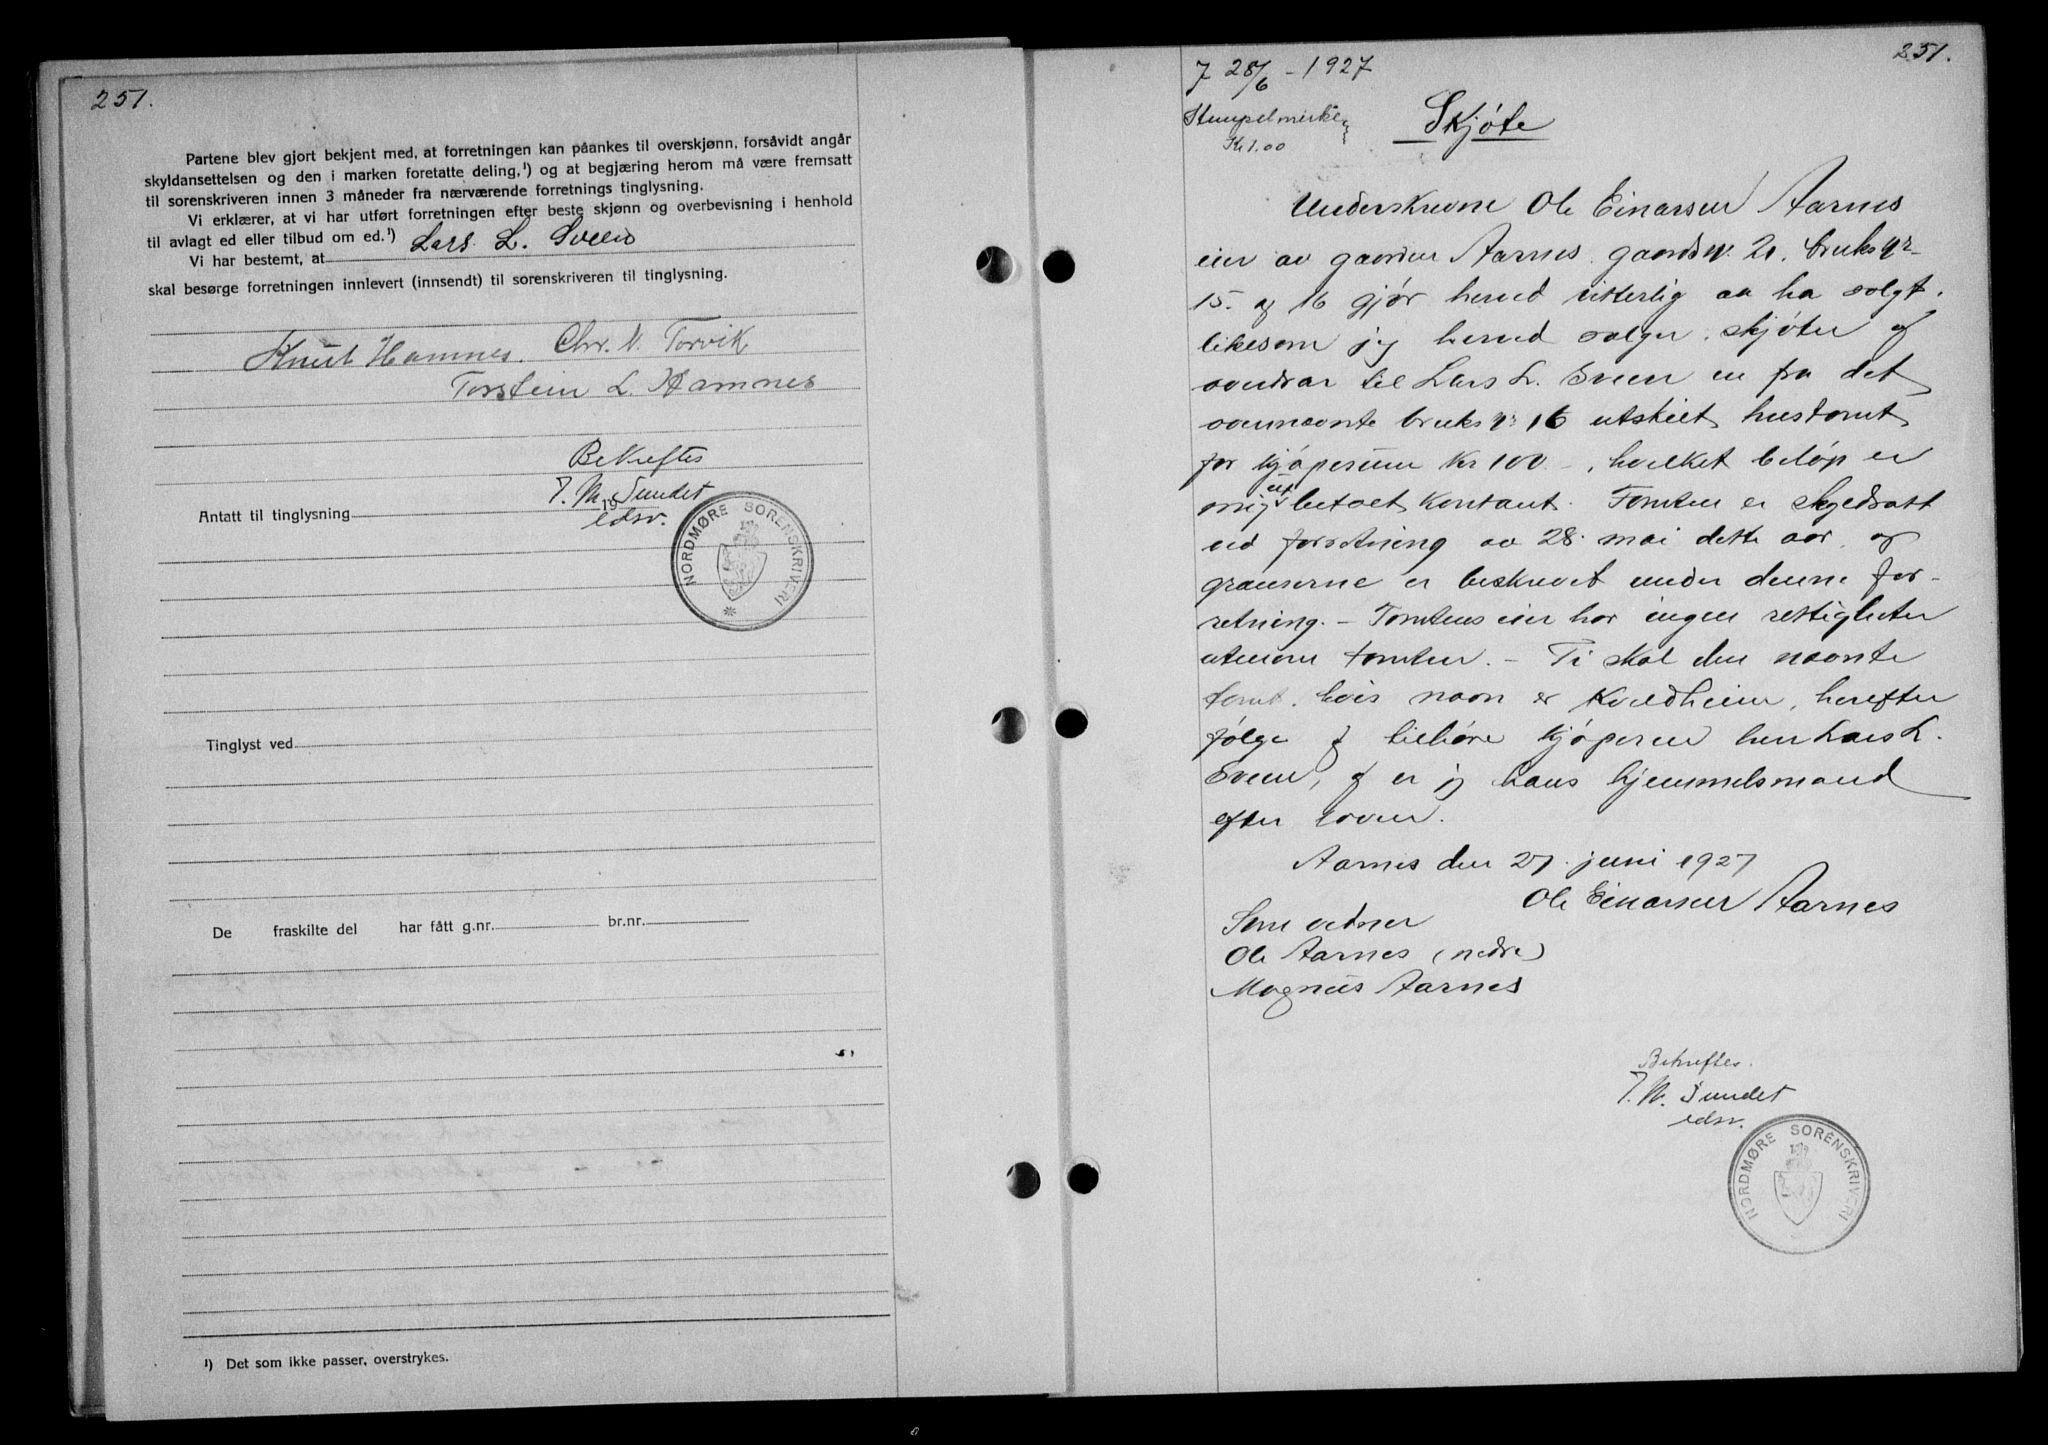 251.
Partene blev gjort bekjent med, at forretningen kan påankes til overskjønn, forsåvidt angår
skyldansettelsen og den i marken foretatte deling,¹) og at begjæring herom må være fremsatt
til sorenskriveren innen 3 måneder fra nærværende forretnings tinglysning.
Vi erklærer, at vi har utført forretningen efter beste skjønn og overbevisning i henhold
til avlagt ed eller tilbud om ed.¹)
Vi har bestemt, at Lars L. Sveen
skal besørge forretningen innlevert (innsendt) til sorenskriveren til tinglysning.
Knut Hamnes. Chr. N. Torvik
Torstein L. Hamnes
Bekreftes
T. M. Sundet
edsv.
Antatt til tinglysning 19
NORDMØRE SORENSKRIVERI
Tinglyst ved
De fraskilte del har fått g.nr. br.nr.
¹) Det som ikke passer, overstrykes.
251.
7 28/6 - 1927
Stempelmerke
Kr 1.00
Skjøte
Underskrevne Ole Einarsen Aarnes
eier av gaarden Aarnes gaardsnr. 21. bruks nr
15. og 16 gjør herved vitterlig aa ha solgt,
likesom jeg herved selger, skjøter og
overdrar til Lars L. Sveen en fra det
ovennevnte bruks nr 16 utskilt hustomt
for kjøpesum Kr 100 -, hvilket beløp er
mig utbetalt kontant. Tomten er skyldsatt
ved forretning av 28. mai dette aar, og
grænserne er beskrevet under denne for-
retning. - Tomtens eier har ingen rettigheter
utenom tomten. - Ti skal den nævnte
tomt, hvis navn er Kveldheim, herefter
følge og tilhøre kjøperen hen Lars L.
Sveen, og er jeg hans hjemmelsmand
efter loven.
Aarnes den 27. juni 1927
Ole Einarsen Aarnes
Som vidner
Ole Aarnes (nedre)
Magnus Aarnes
Bekreftes.
T. M. Sundet
edsv.
NORDMØRE SORENSKRIVERI